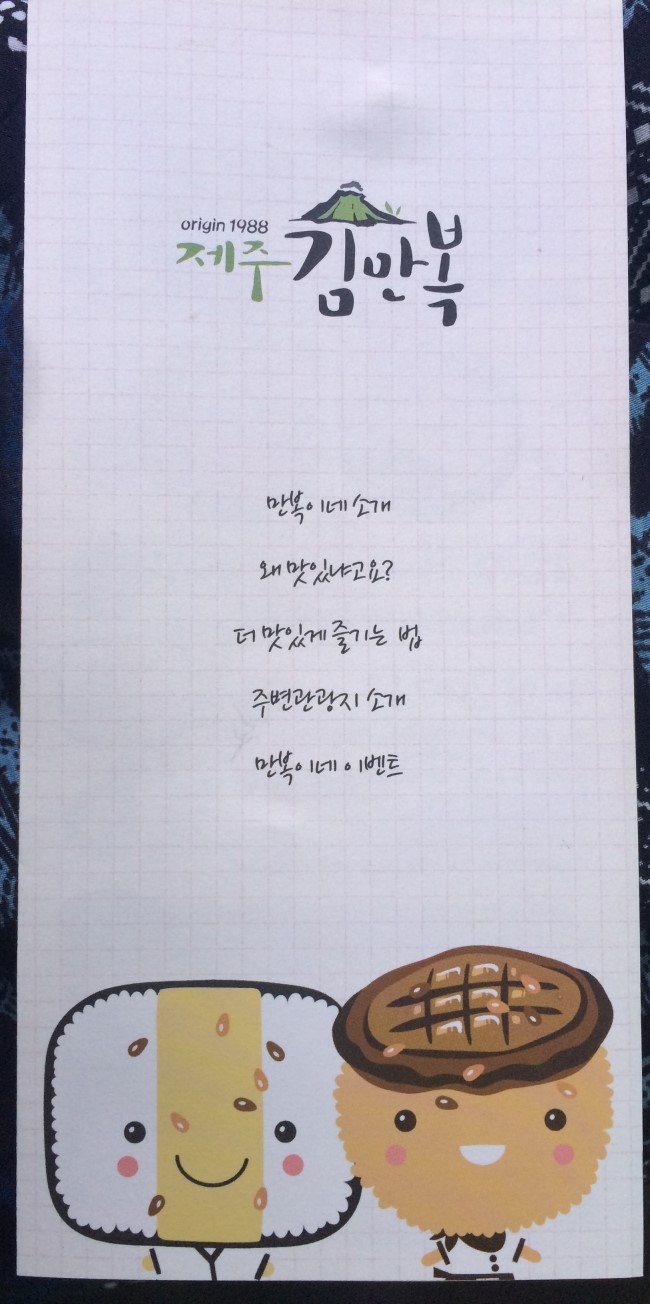 origin 1988
제주 김만복
만복이네 소개
왜 맛있냐고요?
더 맛있게 즐기는 법
주변관광지 소개
만복이네 이벤트